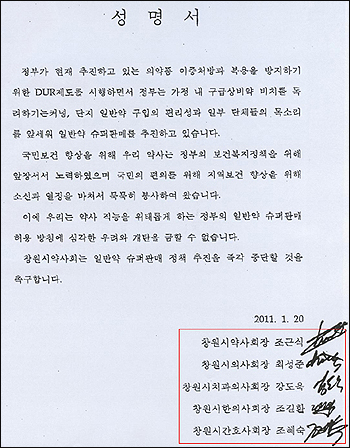 성 명 서
정부가 현재 추진하고 있는 의약품 이중처방과 복용을 방지하기
위한 DUR제도를 시행하면서 정부는 가정 내 구급상비약 비치를 독
려하기는커녕, 단지 일반약 구입의 편리성과 일부 단체들의 목소리
를 앞세워 일반약 슈퍼판매를 추진하고 있습니다.
국민보건 향상을 위해 우리 약사는 정부의 보건복지정책을 위해
앞장서서 노력하였으며 국민의 편의를 위해 지역보건 향상을 위해
소신과 열정을 마쳐서 묵묵히 봉사하여 왔습니다.
이에 우리는 약사 직능을 위태롭게 하는 정부의 일반약 슈퍼판매
허용 방침에 심각한 우려와 개탄을 금할 수 없습니다.
창원시약사회는 일반약 슈퍼판매 정책 추진을 즉각 중단할 것을
촉구합니다.
2011. 1. 20
창원시약사회장 조근식
창원시의사회장 최성준
창원시치과의사회장 강도욱
창원시한의사회장 조길환
창원시간호사회장 조혜숙